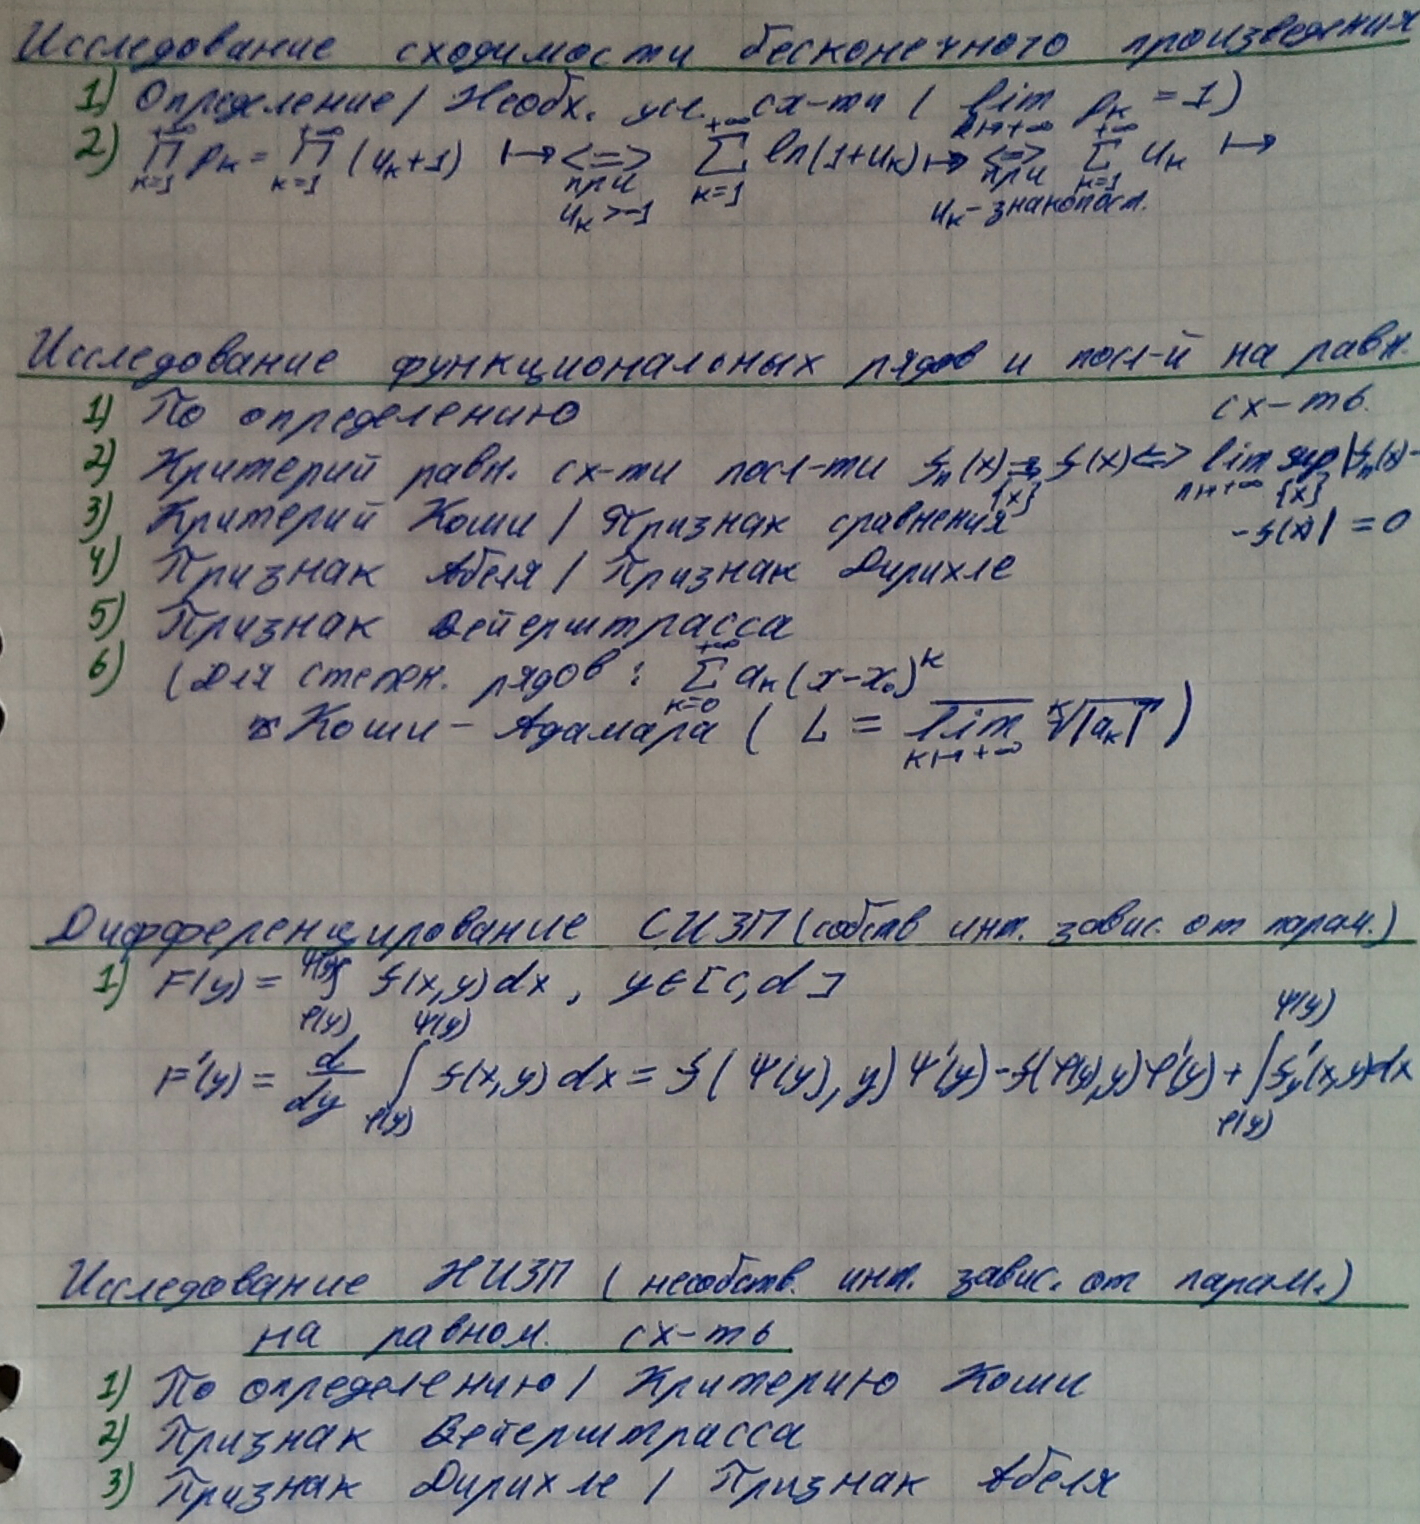 Исследование сходимости бесконечного произведения
1) Определение / Необх. усл. сх-ти ( lim_{k↦+∞} p_k = 1)
2) ∏_{k=1}^{+∞} p_k = ∏_{k=1}^{+∞} (u_k+1) ↦ <=> при u_k>-1 ∑_{k=1}^{+∞} ln(1+u_k) ↦ <=> при u_k - знакопост. ∑_{k=1}^{+∞} u_k ↦
Исследование функциональных рядов и посл-й на равн.
сх-ть.
1) По определению
2) Критерий равн. сх-ти посл-ти f_n(x) ⇉_{{x}} f(x) <=> lim_{n↦+∞} sup_{{x}} |f_n(x)-
-f(x)| = 0
3) Критерий Коши / Признак сравнения
4) Признак Абеля / Признак Дирихле
5) Признак Вейерштрасса
6) (Для степен. рядов : ∑_{k=0}^{+∞} a_k (x-x_0)^k
Коши - Адамара ( L = \overline{lim}_{k↦+∞} \sqrt[k]{|a_k|} )
Дифференцирование СИЗП (собств инт. завис. от парам.)
1) F(y) = ∫_{φ(y)}^{ψ(y)} f(x,y) dx , y∈[c,d]
F'(y) = \frac{d}{dy} ∫_{φ(y)}^{ψ(y)} f(x,y) dx = f( ψ(y), y) ψ'(y) - f(φ(y),y) φ'(y) + ∫_{φ(y)}^{ψ(y)} f'_y(x,y) dx
Исследование НИЗП ( несобств. инт. завис. от парам.)
на равном. сх-ть
1) По определению / Критерию Коши
2) Признак Вейерштрасса
3) Признак Дирихле / Признак Абеля